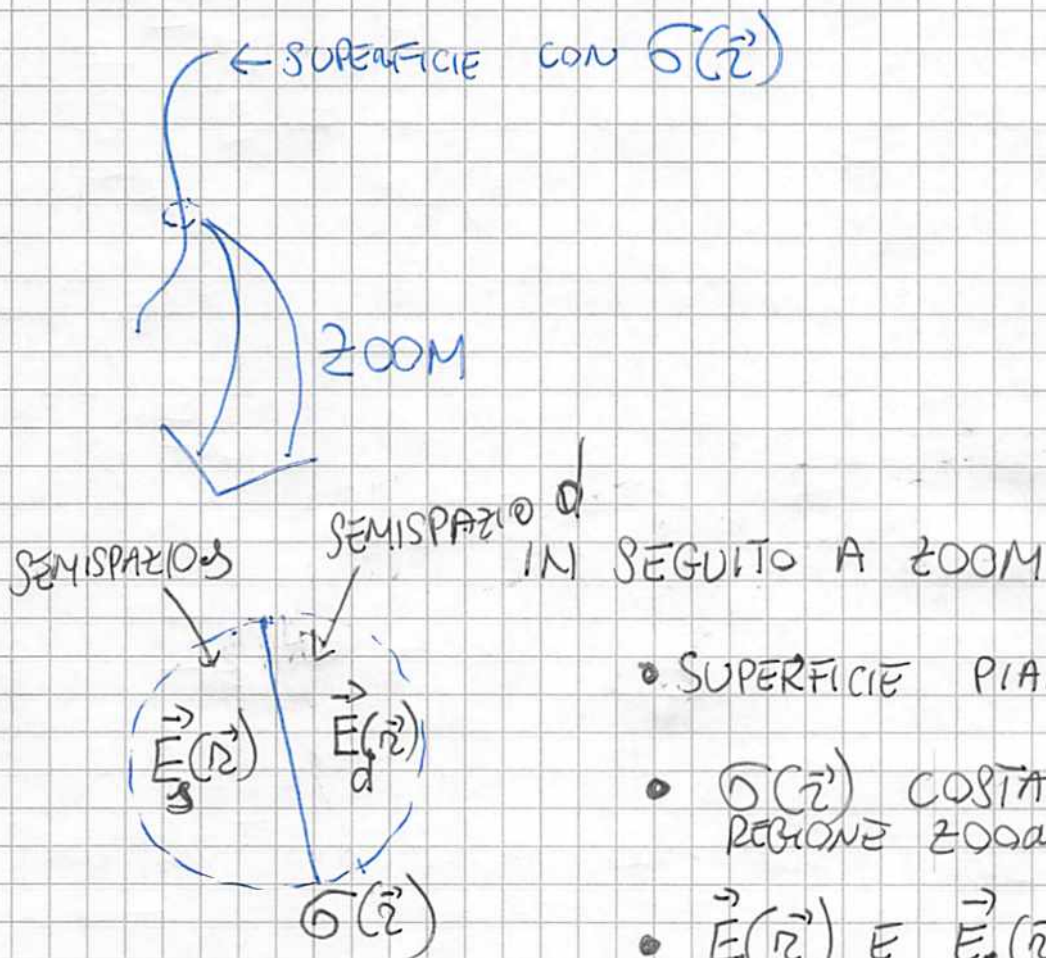 ← SUPERFICIE CON σ(r⃗)
ZOOM
SEMISPAZIO s
SEMISPAZIO d
IN SEGUITO A ZOOM
• SUPERFICIE PIA
E⃗s(r⃗)
E⃗d(r⃗)
• σ(r⃗) COSTA
REGIONE ZOOa
σ(r⃗)
• E⃗(r⃗) E E⃗(r⃗